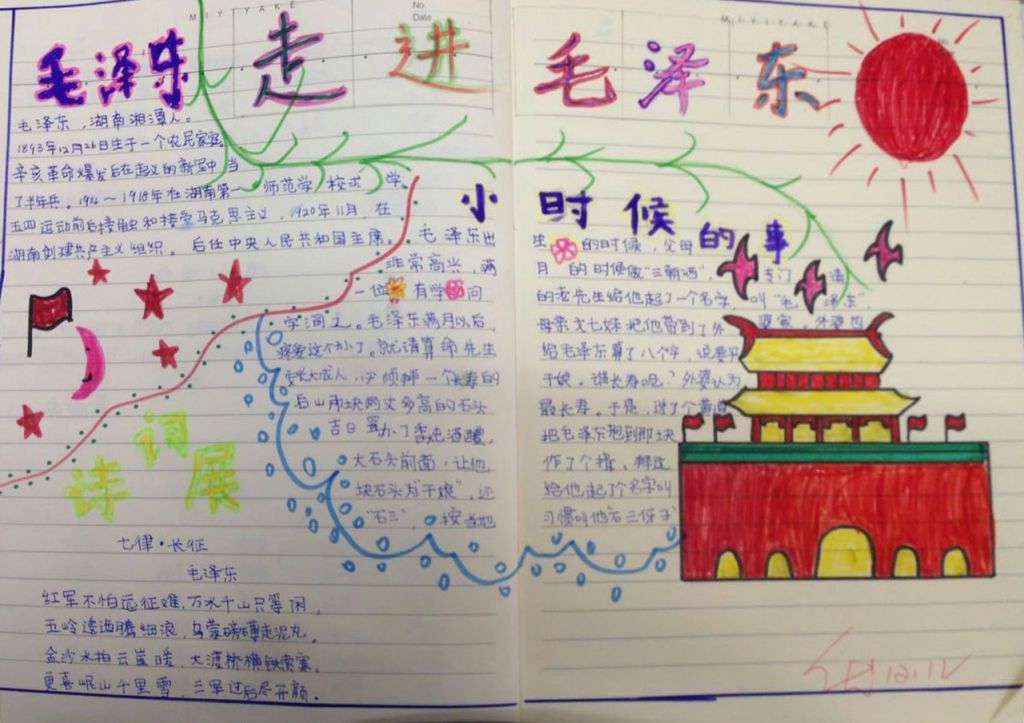 MIYIYAKE
No.
Date
MIYIYAKE
毛泽东 走进 毛泽东
毛泽东,湖南湘潭人。
1893年12月26日生于一个农民家庭
辛亥革命爆发后在起义的新军中当
了半年兵。1914~1918年在湖南第一师范学校求学。
五四运动前后接触和接受马克思主义,1920年11月,在
湖南创建共产主义组织。后任中央人民共和国主席。
诗词展
七律·长征
毛泽东
红军不怕远征难,万水千山只等闲。
五岭逶迤腾细浪,乌蒙磅礴走泥丸。
金沙水拍云崖暖,大渡桥横铁索寒。
更喜岷山千里雪,三军过后尽开颜。
小时候的事
毛泽东出生的时候,父母
非常高兴,满月的时候做"三朝酒",专门请
一位有学问的老先生给他起了一个名字,叫"毛泽东",
字润之。毛泽东满月以后,母亲文七妹把他带到了外婆家,外婆也
疼爱这个外了。就请算命先生给毛泽东算了八个字,说要平
安长大成人,必须拜一个长寿的干娘。谁长寿呢?外婆认为
后山那块两丈多高的石头最长寿。于是,选了个黄道
吉日置办了香走酒醴,把毛泽东抱到那块
大石头前面,让他作了个揖,拜这
块石头为"干娘",还给他起了个名字叫
"石三",按当地习惯叫他石三伢子
12.12